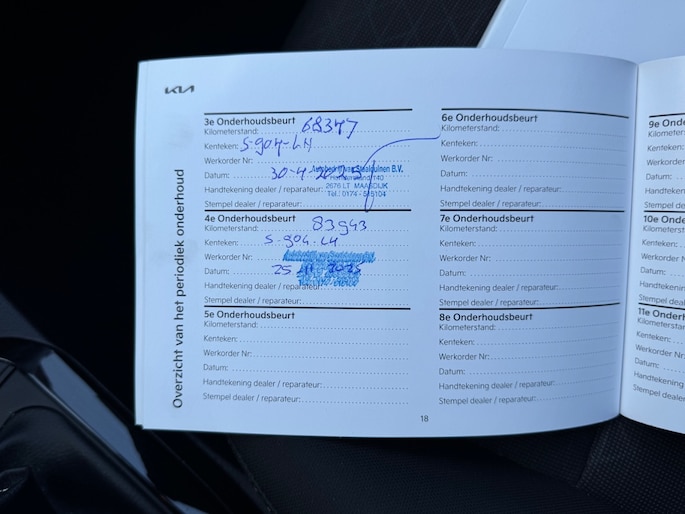 KIA
Overzicht van het periodiek onderhoud
3e Onderhoudsbeurt
Kilometerstand: 68347
Kenteken: S-904-LH
Werkorder Nr:
Datum: 30-4-2025
Handtekening dealer / reparateur:
Stempel dealer / reparateur:
2676 LT MAASDIJK
4e Onderhoudsbeurt
Kilometerstand: 83943
Kenteken: S-904-LH
Werkorder Nr:
Datum: 25 2025
Handtekening dealer / reparateur:
Stempel dealer / reparateur:
5e Onderhoudsbeurt
Kilometerstand:
Kenteken:
Werkorder Nr:
Datum:
Handtekening dealer / reparateur:
Stempel dealer / reparateur:
6e Onderhoudsbeurt
Kilometerstand:
Kenteken:
Werkorder Nr:
Datum:
Handtekening dealer / reparateur:
Stempel dealer / reparateur:
7e Onderhoudsbeurt
Kilometerstand:
Kenteken:
Werkorder Nr:
Datum:
Handtekening dealer / reparateur:
Stempel dealer / reparateur:
8e Onderhoudsbeurt
Kilometerstand:
Kenteken:
Werkorder Nr:
Datum:
Handtekening dealer / reparateur:
Stempel dealer / reparateur:
18
9e Onde
Kilometer
Kenteken:
Werkorder
Datum:
Handteken
Stempel de
10e Onde
Kilometerst
Kenteken:
Werkorder
Datum:
Handtekenin
Stempel dea
11e Onderh
Kilometerstan
Kenteken:
Werkorder
Datum:
Handtekening
Stempel deale